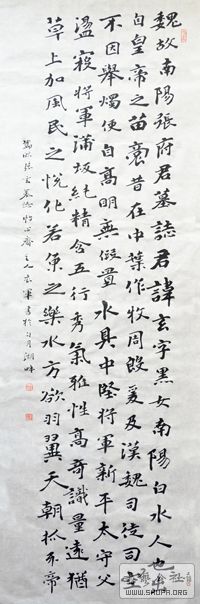 魏故南陽張府君墓誌君諱玄字黑女南陽白水人也出
自皇帝之苗裔昔在中葉作牧周殷爰及漢魏司徒司空
不因舉燭便自高明無假置水具中堅將軍新平太守父
盪寇將軍蒲坂純精含五行秀氣雅性高奇識量遠猶
草上加風民之悅化若魚之樂水方欲羽翼天朝抓牙帝
張玄墓志怡心齋主人軍書於月湖畔
WWW.SHUFA.ORG